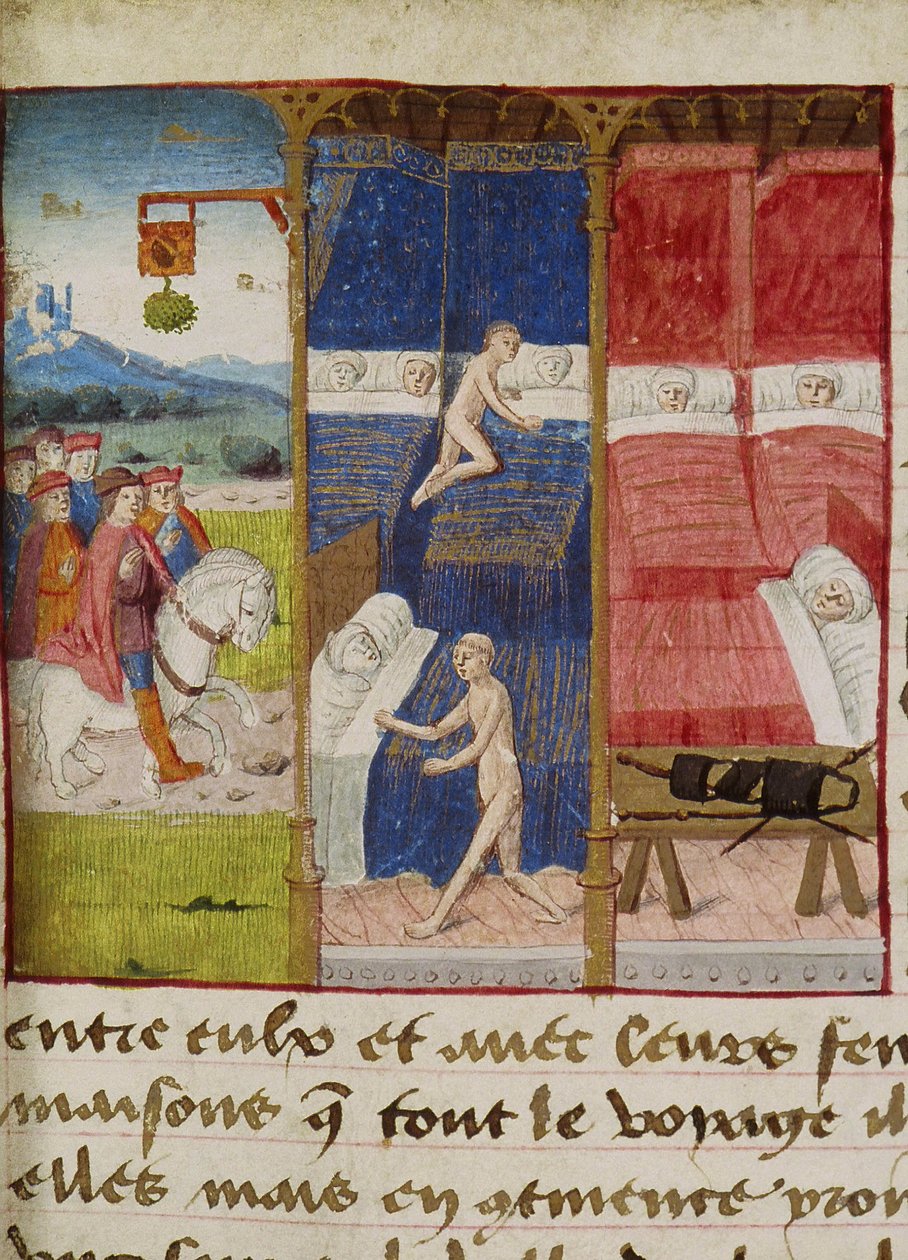 entre eulx et avec leurs fem
maisons q̃ tout le voyage il
elles mais en gẽmence pron